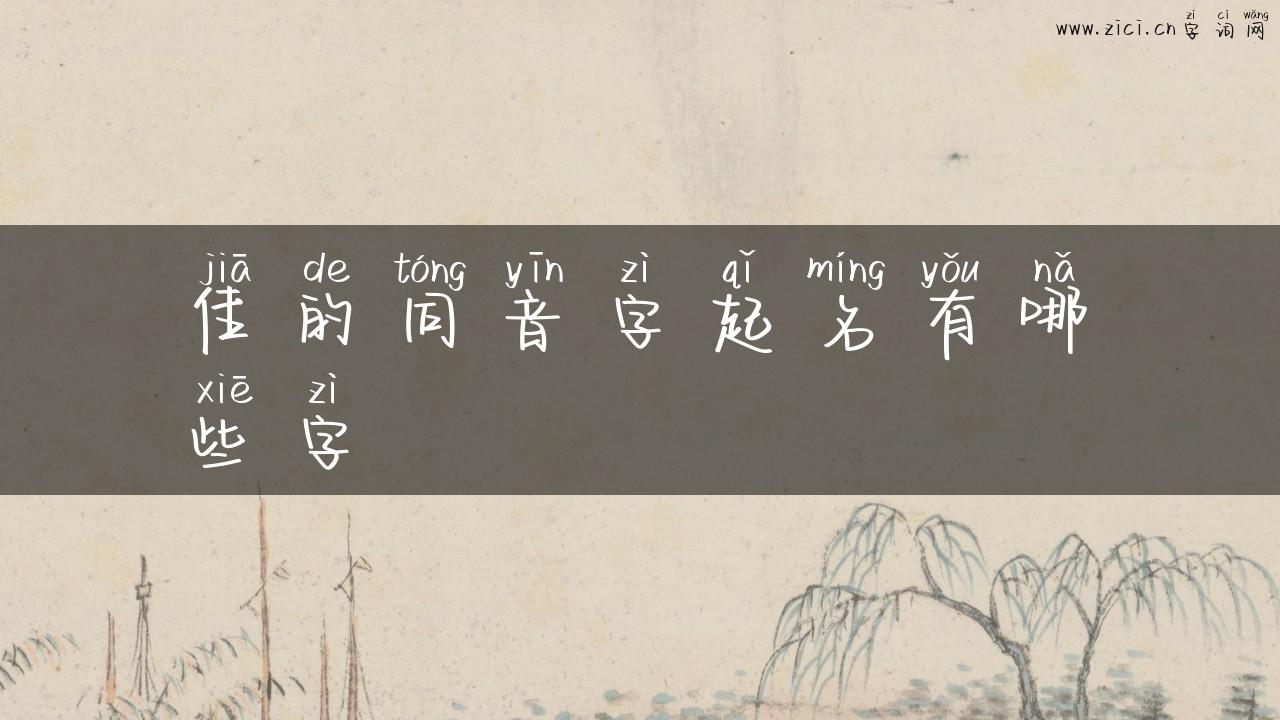 zì cí wǎng
www.zici.cn 字词网
jiā de tóng yīn zì qǐ míng yǒu nǎ
佳的同音字起名有哪
xiē zì
些字